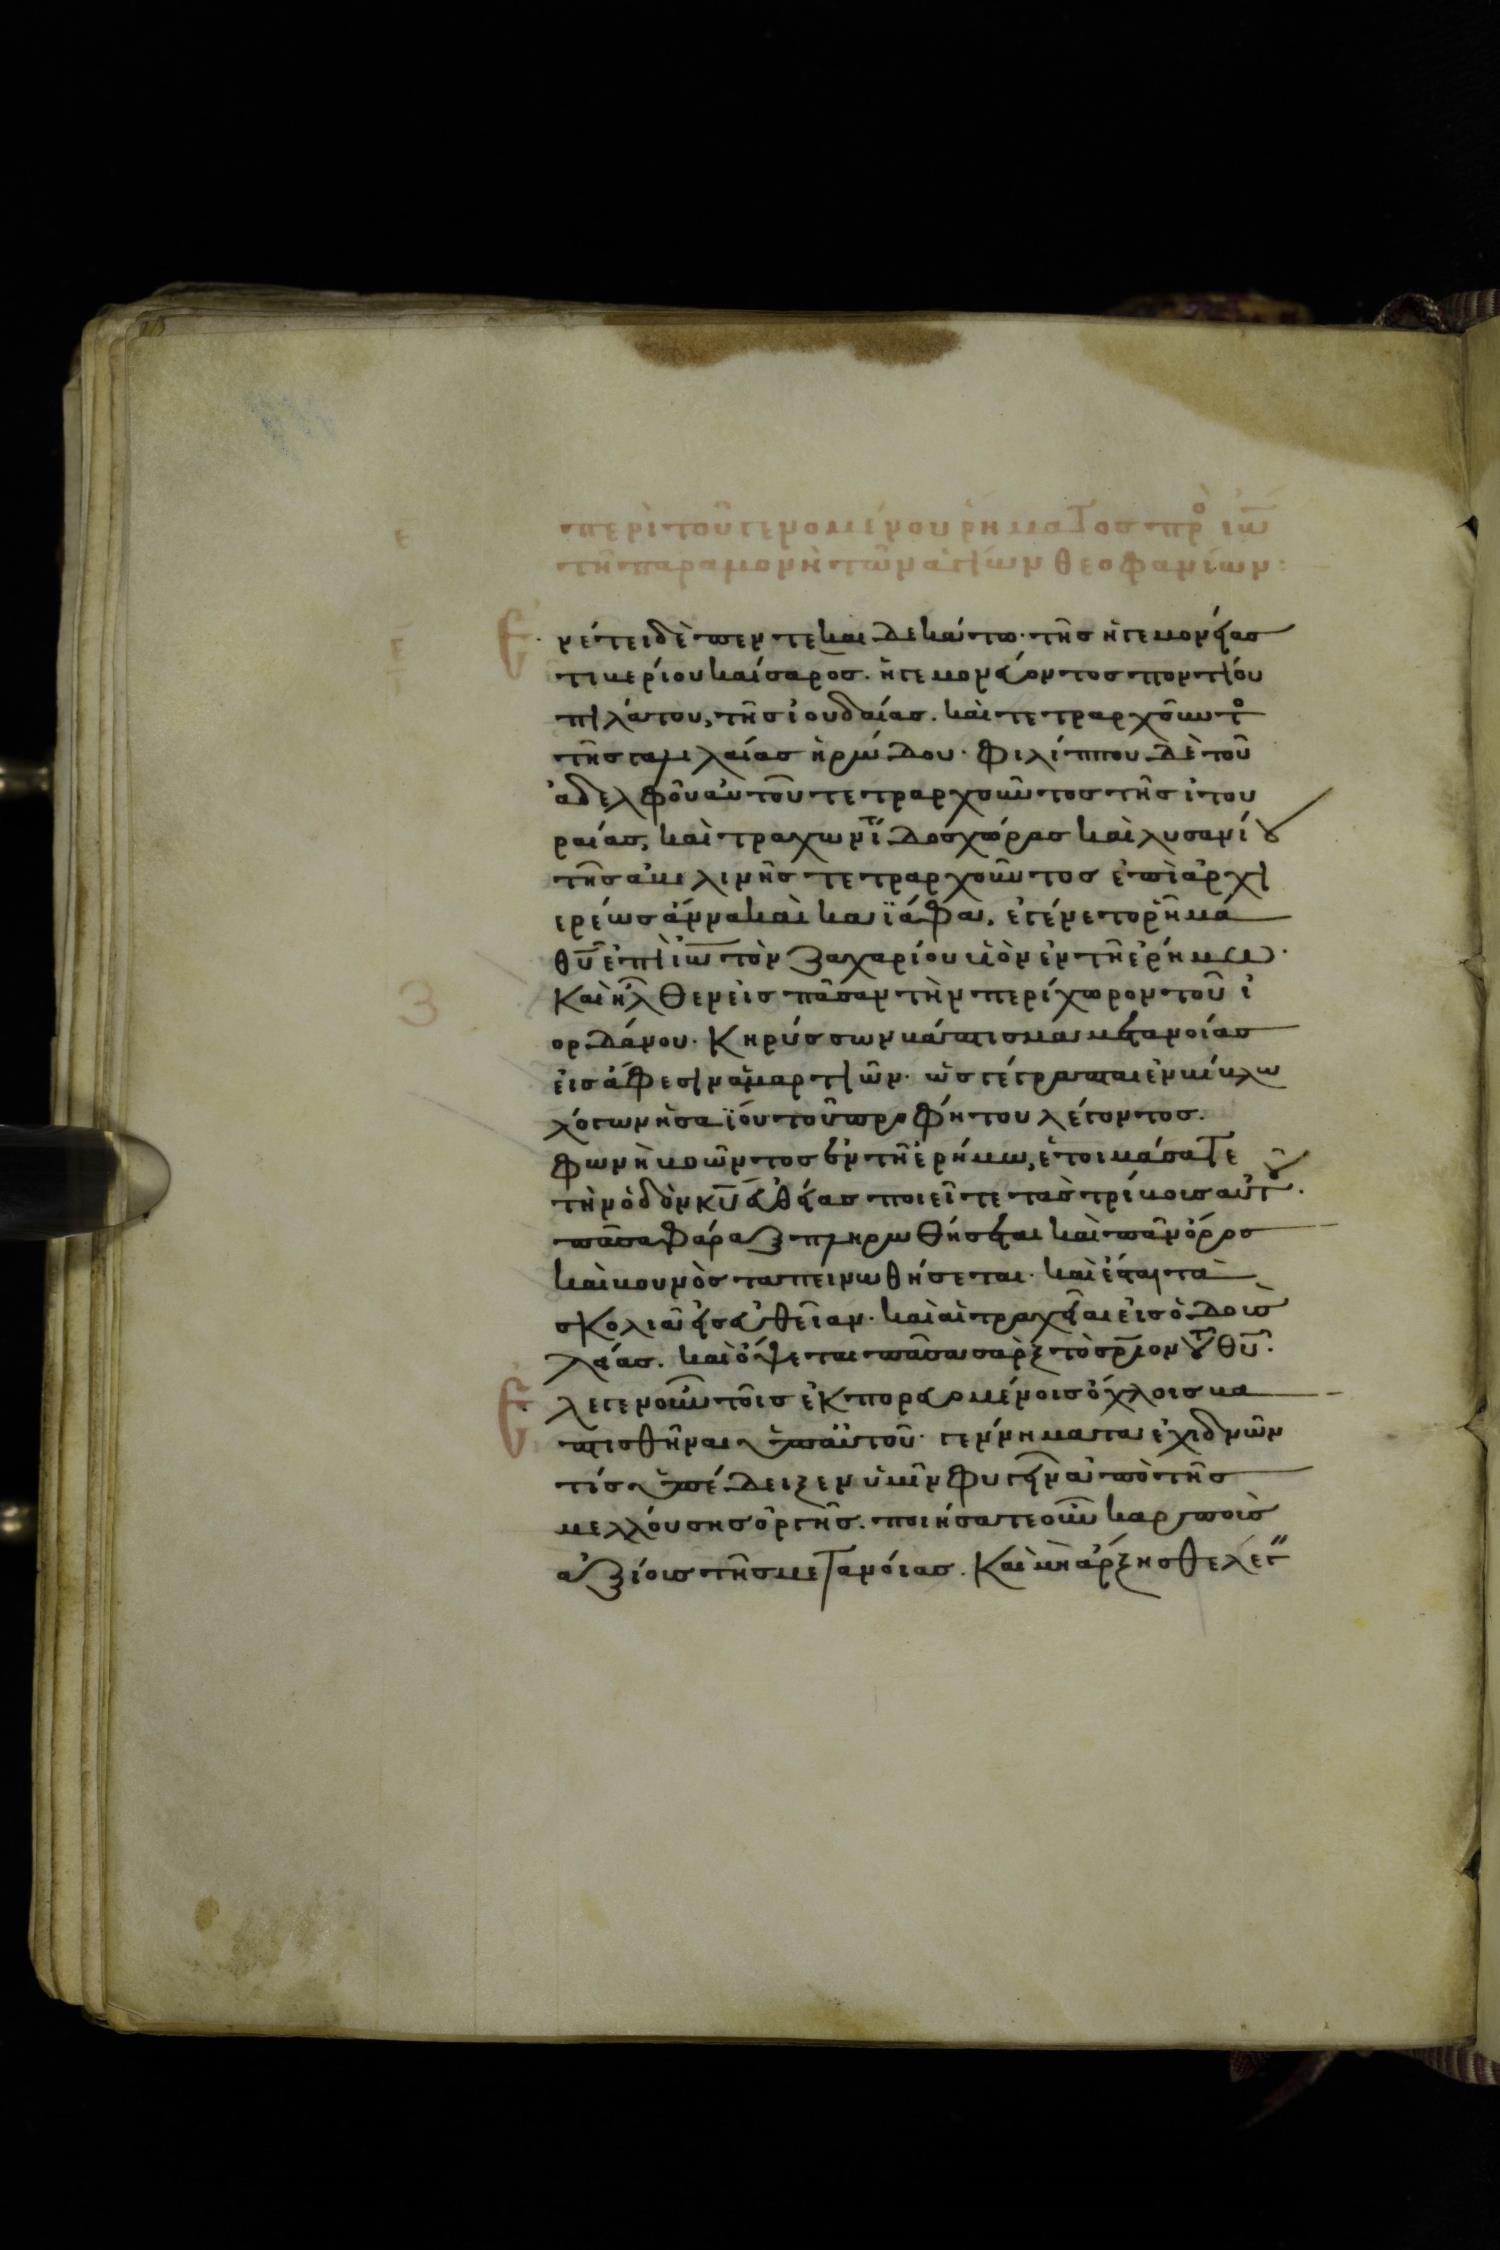 περὶ τοῦ γενομένου ῥήματος πρὸς ἰω
τῆ παραμονῆ τῶν ἁγίων θεοφανίων:
Ἐν ἔτει δὲ πεντεκαιδεκάτω· τῆς ἡγεμονίας
τιβερίου καίσαρος. ἡγεμονεύοντος ποντίου
πιλάτου, τῆς ἰουδαίας. καὶ τετραρχοῦντο
τῆς γαλιλαίας ἡρώδου· φιλίππου δὲ τοῦ
ἀδελφοῦ αὐτοῦ τετραρχοῦντος τῆς ἰτου
ραίας, καὶ τραχωνίτιδος χώρας καὶ λυσανίου
τῆς ἀβιλινῆς τετραρχοῦντος ἐπὶ ἀρχι
ερέως ἄννα καὶ καϊάφα, ἐγένετο ῥῆμα
θῦ ἐπὶ ἰω τὸν ζαχαρίου υἱὸν ἐν τῆ ἐρήμω·
καὶ ἦλθεν εἰς πᾶσαν τὴν περίχωρον τοῦ ἰ
ορδάνου. κηρύσσων βάπτισμα μετανοίας
εἰς ἄφεσιν ἁμαρτιῶν· ὡς γέγραπται ἐν βίβλω
λόγων ἡσαϊου τοῦ προφήτου λέγοντος.
φωνὴ βοῶντος ἐν τῆ ἐρήμω, ἑτοιμάσατε
τὴν ὁδὸν κῦ εὐθείας ποιεῖτε τὰς τρίβους αὐτοῦ.
πᾶσα φάραξ πληρωθήσεται καὶ πᾶν ὄρος
καὶ βουνὸς ταπεινωθήσεται· καὶ ἔσται τὰ
σκολιὰ εἰς εὐθεῖαν· καὶ αἱ τραχεῖαι εἰς ὁδοὺς
λείας. καὶ ὄψεται πᾶσα σὰρξ τὸ σριον τοῦ θῦ.
Ἔλεγεν οὖν τοῖς ἐκπορευομένοις ὄχλοις βα
πτισθῆναι ὑπ' αὐτοῦ· γεννήματα ἐχιδνῶν
τίς ὑπέδειξεν ὑμῖν φυγεῖν ἀπὸ τῆς
μελλούσης ὀργῆς. ποιήσατε οὖν καρποὺς
ἀξίους τῆς μετανοίας. καὶ μὴ ἄρξησθε λέγειν